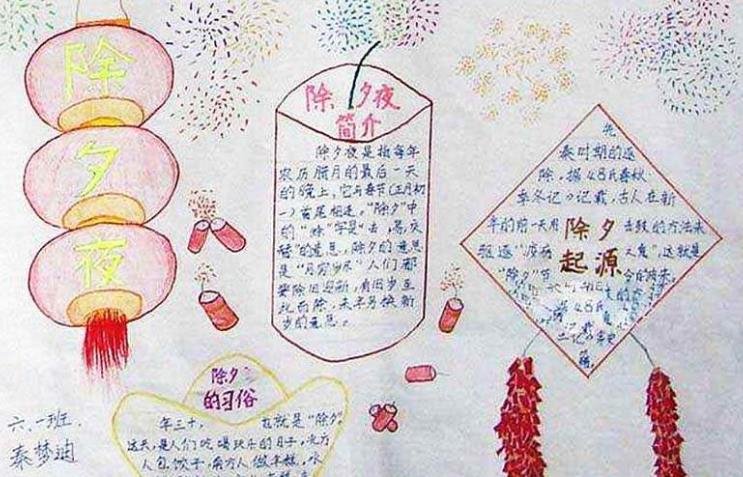 除
夕
夜
除夕夜
简介
除夕夜是指每年
农历腊月的最后一天
的晚上,它与春节(正月初
一)首尾相连。“除夕”中
的“除”字是“去;易;交
替”的意思,除夕的意思
是“月穷岁尽”人们都
要除旧迎新,有旧岁至
此而除,来年另换新
岁的意思。
除夕
起源
先
秦时期的逐
除,据
季冬记》记载,古人在新
年的前一天用击鼓的方法来
驱逐“疫疠之鬼”,这就是
“除夕”节
除夕
的习俗
年三十, 也就是“除夕”
这天,是人们吃喝玩乐的日子,北方
人包饺子,南方人做年糕,水
六.一班.
秦梦迪